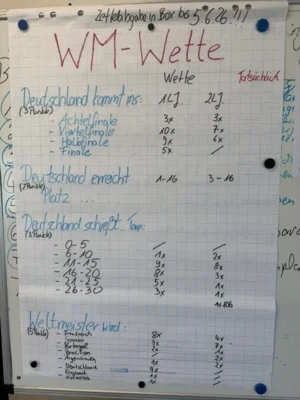 Zettelabgabe in Box bis 5.6.26!!!
WM-Wette
Wette Tatsächlich
Deutschland kommt ins: 1LJ. 2LJ.
(3 Punkte)
- Achtelfinale 3x 3x
- Viertelfinale 10x 7x
- Halbfinale 9x 6x
- Finale 5x /
Deutschland erreicht 1-16 3-16
(2 Punkte) Platz ...
Deutschland schießt ... Tore:
(3 Punkte)
- 0-5 / /
- 6-10 1x 2x
- 11-15 9x 9x
- 16-20 8x 3x
- 21-25 5x 1x
- 26-30 3x 1x
1x106
Weltmeister wird:
- Frankreich 8x 4x
- Spanien 7x
- Portugal
- Brasilien 2x
- Argentinien 1x
- Deutschland /
- England /
/